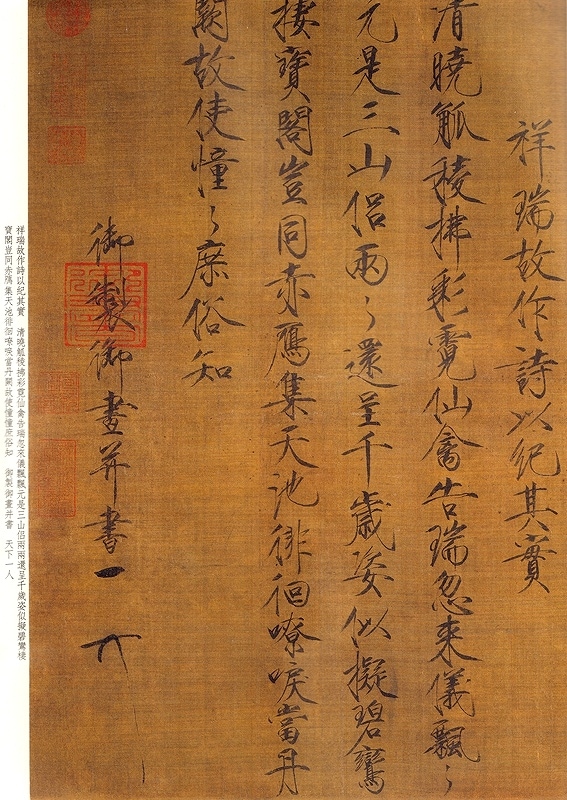 祥瑞故作詩以紀其實
清曉觚稜拂彩霓仙禽告瑞忽來儀飄々
元是三山侶兩々還呈千歲姿似擬碧鸞
棲寶閣豈同赤鴈集天池徘徊嘹唳當丹
闕故使憧々庶俗知
御製御畫并書
祥瑞故作詩以紀其實　清曉觚稜拂彩霓仙禽告瑞忽來儀飄飄元是三山侶兩兩還呈千歲姿似擬碧鸞棲
寶閣豈同赤鴈集天池徘徊嘹唳當丹闕故使憧憧庶俗知　御製御畫并書　天下一人